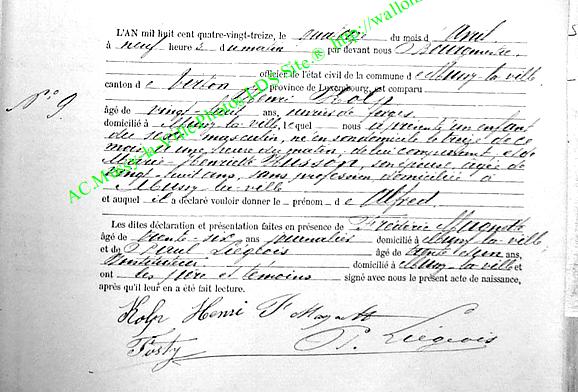 L'AN mil huit cent quatre-vingt-treize, le quinze du mois d Avril
à neuf heures du matin par devant nous
officier de l'état civil de la commune d e Mussy-la-ville
canton d e Virton, province de Luxembourg, est comparu
N° 9.
Henri Kolp
âgé de vingt- ans, ouvrier de forges
domicilié à Mussy-la-ville, lequel nous a présenté un enfant
du sexe masculin, né en son domicile le treize de ce
mois à une heure du matin, de lui comparant et de
Marie Husson, son épouse, âgée de
vingt-huit ans, sans profession, domiciliée à
Mussy-la-ville
et auquel il a déclaré vouloir donner le prénom d e Alfred.
Les dites déclaration et présentation faites en présence de Frédéric
âgé de trente-six ans, journalier domicilié à Mussy-la-ville
et de Paul Liégeois âgé de trente ans,
domicilié à Mussy-la-ville et
ont les père et témoins signé avec nous le présent acte de naissance,
après qu'il leur en a été fait lecture.
Kolp Henri F
P. Liégeois
AC.Mussy-la-Ville Photos LDS Site ® http://wallon